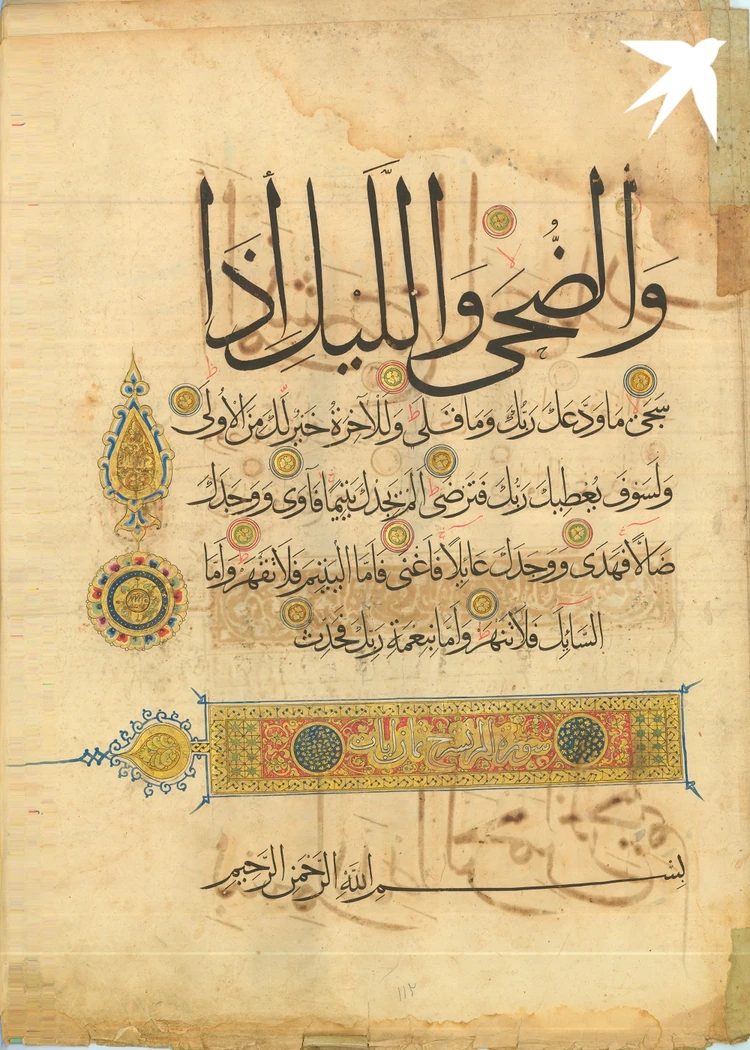 وَالضُّحَى وَاللَّيْلِ إِذَا
سَجَىٰ مَا وَدَّعَكَ رَبُّكَ وَمَا قَلَى وَلَلْآخِرَةُ خَيْرٌ لَكَ مِنَ الْأُولَى
وَلَسَوْفَ يُعْطِيكَ رَبُّكَ فَتَرْضَى أَلَمْ يَجِدْكَ يَتِيمًا فَآوَى وَوَجَدَكَ
ضَالًّا فَهَدَى وَوَجَدَكَ عَايِلًا فَأَغْنَى فَأَمَّا الْيَتِيمَ فَلَا تَقْهَرْ وَأَمَّا
السَّائِلَ فَلَا تَنْهَرْ وَأَمَّا بِنِعْمَةِ رَبِّكَ فَحَدِّثْ
سورة الم نشرح ثمان ايات
بِسْمِ اللَّهِ الرَّحْمَنِ الرَّحِيمِ
١١٢